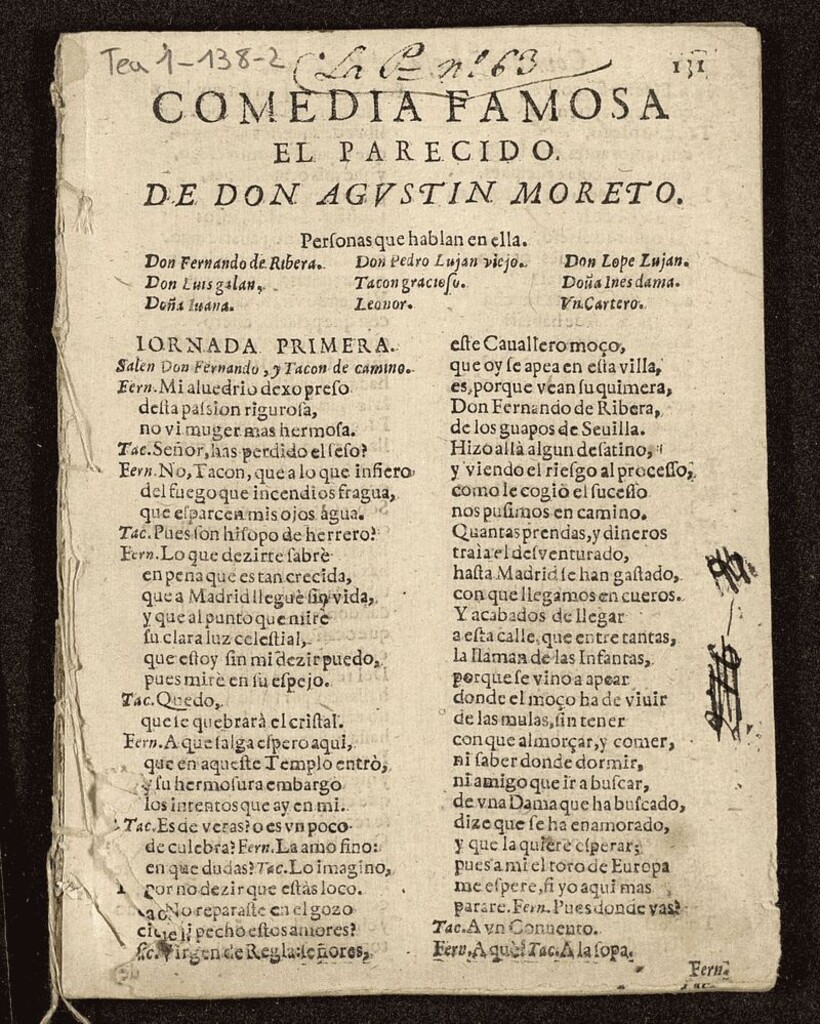 Tea 1-138-2
La Pe nº 63
131
COMEDIA FAMOSA
EL PARECIDO.
DE DON AGVSTIN MORETO.
Perſonas que hablan en ella.
Don Fernando de Ribera. Don Pedro Lujan viejo. Don Lope Lujan.
Don Luis galan. Tacon gracioſo. Doña Ines dama.
Doña Iuana. Leonor. Vn Cartero.
IORNADA PRIMERA.
Salen Don Fernando, y Tacon de camino.
Fern. Mi aluedrio dexo preſo
deſta paſsion riguroſa,
no vi muger mas hermoſa.
Tac. Señor, has perdido el ſeſo?
Fern. No, Tacon, que a lo que infiero
del fuego que incendios fragua,
que eſparcen mis ojos agua.
Tac. Pues ſon hiſopo de herrero?
Fern. Lo que dezirte ſabrè
en pena que es tan crecida,
que a Madrid lleguè ſin vida,
y que al punto que mirè
ſu clara luz celeſtial,
que eſtoy ſin mi dezir puedo,
pues mirè en ſu eſpejo.
Tac. Quedo,
que ſe quebrarà el criſtal.
Fern. A que ſalga eſpero aqui,
que en aqueſte Templo entrò,
y ſu hermoſura embargò
los intentos que ay en mi.
Tac. Es de veras? o es vn poco
de culebra? Fern. La amo fino:
en que dudas? Tac. Lo imagino,
por no dezir que eſtàs loco.
No reparaſte en el gozo
pecho eſtos amores?
Virgen de Regla: ſeñores,
eſte Cauallero moço,
que oy ſe apea en eſta villa,
es, porque vean ſu quimera,
Don Fernando de Ribera,
de los guapos de Seuilla.
Hizo allà algun deſatino,
y viendo el rieſgo al proceſſo,
como le cogiò el ſuceſſo
nos puſimos en camino.
Quantas prendas, y dineros
traia el deſventurado,
haſta Madrid ſe han gaſtado,
con que llegamos en cueros.
Y acabados de llegar
a eſta calle, que entre tantas,
la llaman de las Infantas,
porque ſe vino a apear
donde el moço ha de viuir
de las mulas, ſin tener
con que almorçar, y comer,
ni ſaber donde dormir,
ni amigo que ir a buſcar,
de vna Dama que ha buſcado,
dize que ſe ha enamorado,
y que la quiere eſperar;
pues a mi el toro de Europa
me eſpere, ſi yo aqui mas
parare. Fern. Pues donde vas?
Tac. A vn Conuento.
Fern. A què? Tac. A la ſopa.
Fern.